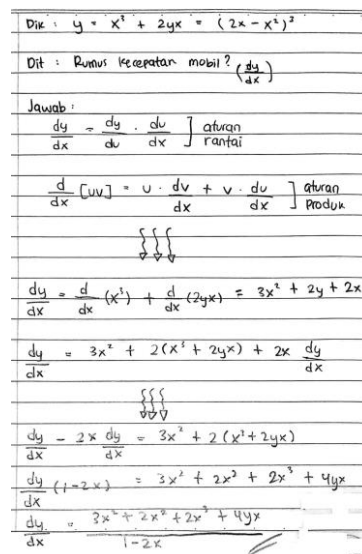 Dik : y = x³ + 2yx = (2x - x²)³
Dit : Rumus kecepatan mobil? (dy/dx)
Jawab :
dy/dx = dy/du . du/dx ] aturan rantai
d/dx [uv] = u . dv/dx + v . du/dx ] aturan produk
dy/dx = d/dx (x³) + d/dx (2yx) = 3x² + 2y + 2x
dy/dx = 3x² + 2(x³ + 2yx) + 2x dy/dx
dy/dx - 2x dy/dx = 3x² + 2(x³ + 2yx)
dy/dx (1-2x) = 3x² + 2x³ + 2x³ + 4yx
dy/dx = 3x² + 2x² + 2x³ + 4yx / 1-2x